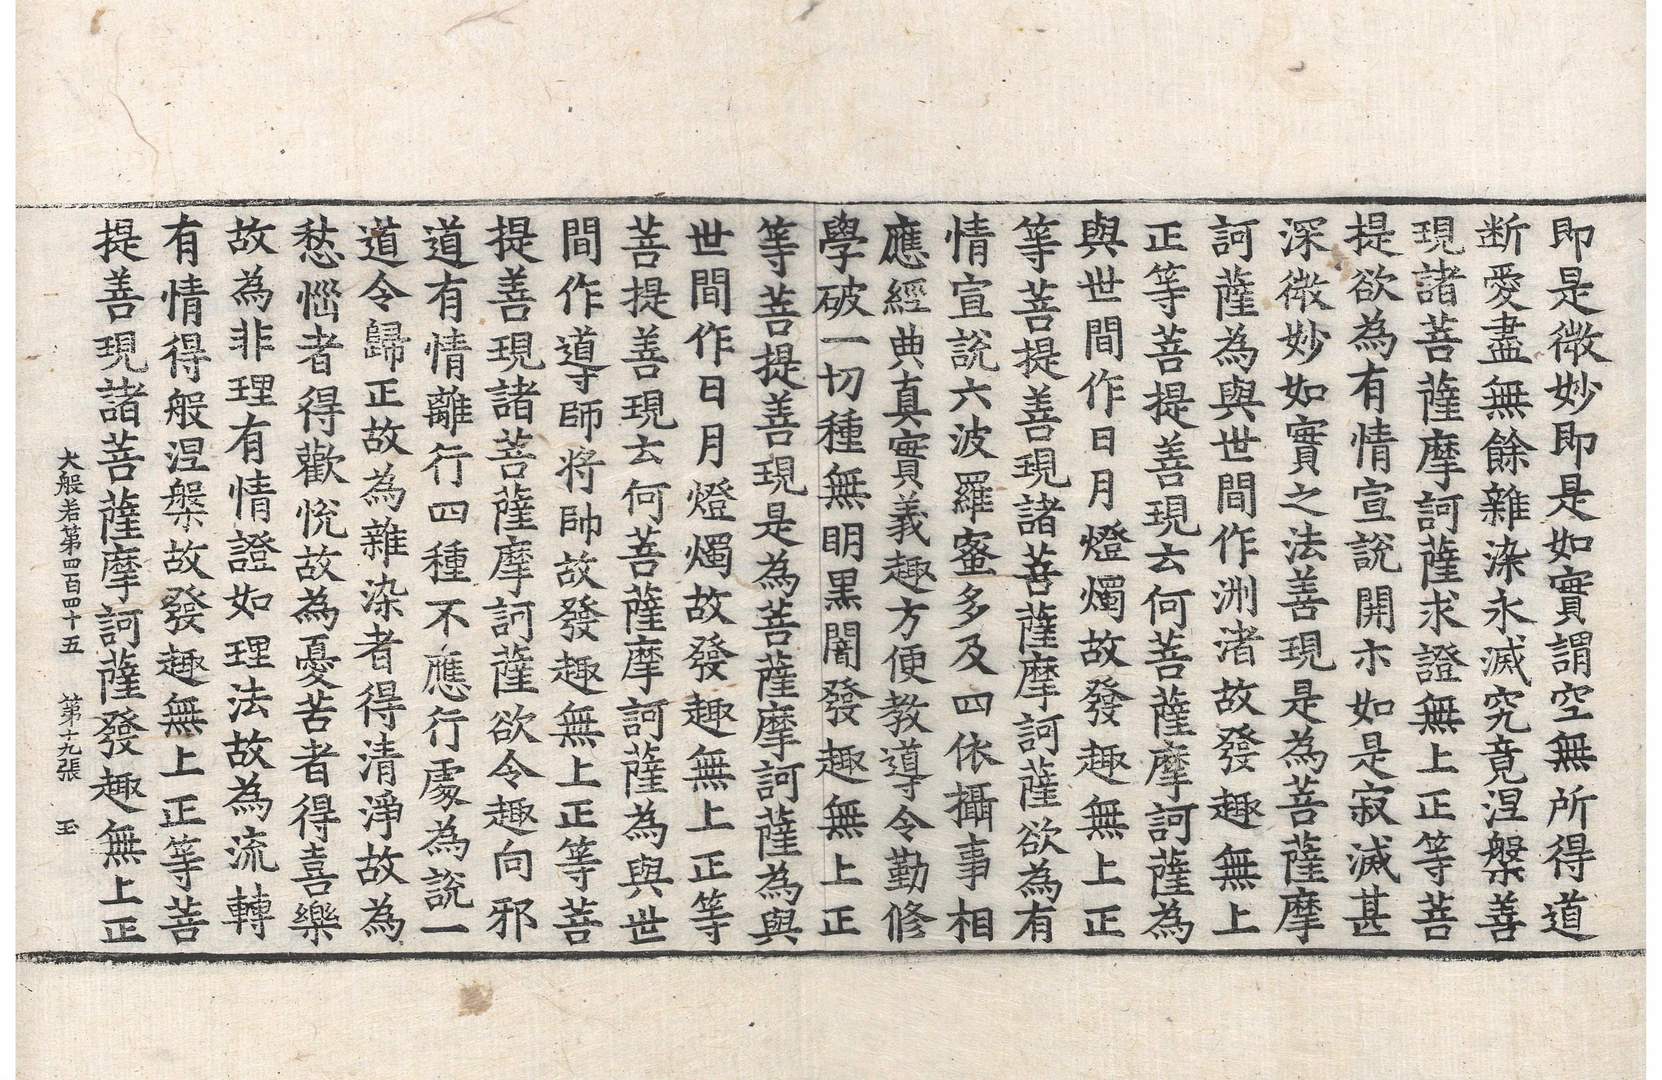 即是微妙即是如實謂空無所得道
断愛盡無餘雜染永滅究竟涅槃善
現諸菩薩摩訶薩求證無上正等菩
提欲為有情宣說開示如是寂滅甚
深微妙如實之法善現是為菩薩摩
訶薩為與世間作洲渚故發趣無上
正等菩提善現云何菩薩摩訶薩為
與世間作日月燈燭故發趣無上正
等菩提善現諸菩薩摩訶薩欲為有
情宣說六波羅蜜多及四依攝事相
應經典真實義趣方便教導令勤修
學破一切種無明黑闇發趣無上正
等菩提善現是為菩薩摩訶薩為與
世間作日月燈燭故發趣無上正等
菩提善現云何菩薩摩訶薩為與世
間作導師將帥故發趣無上正等菩
提善現諸菩薩摩訶薩欲令趣向邪
道有情離行四種不應行處為說一
道令歸正故為雜染者得清淨故為
愁惱者得歡悅故為憂苦者得喜樂
故為非理有情證如理法故為流轉
有情得般涅槃故發趣無上正等菩
提善現諸菩薩摩訶薩發趣無上正
大般若第四百四十五 第十九張 玉